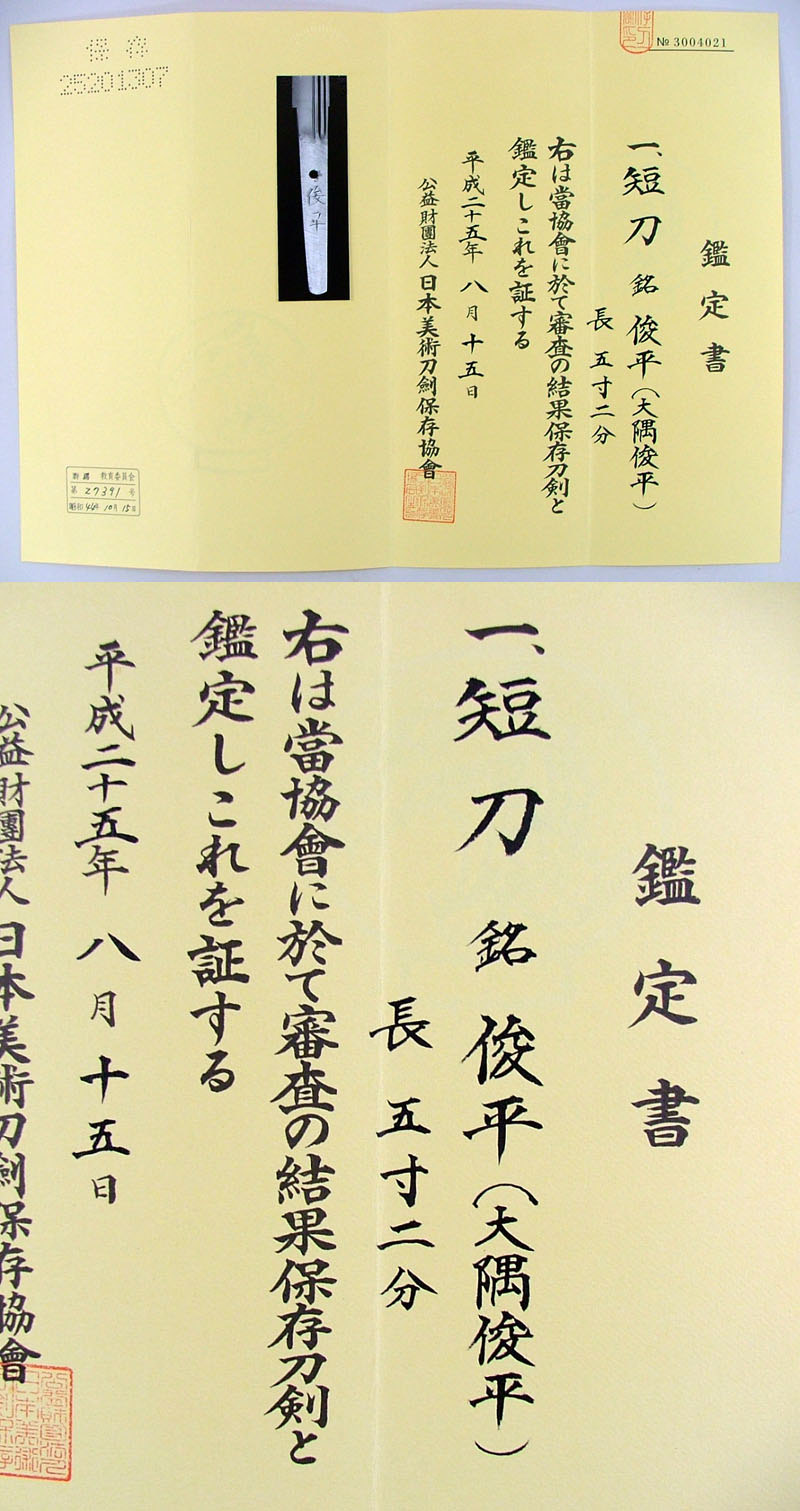 № 3004021
鑑定書
一、短刀 銘 俊平(大隅俊平)
長 五寸二分
右は當協會に於て審査の結果保存刀剣と
鑑定しこれを証する
平成二十五年 八月十五日
公益財團法人 日本美術刀劍保存協會
俊平
保存
25201307
群馬 教育委員会
第 27391 号
昭和 46年 10月 15日
鑑定書
一、短刀 銘 俊平(大隅俊平)
長 五寸二分
右は當協會に於て審査の結果保存刀剣と
鑑定しこれを証する
平成二十五年 八月十五日
公益財團法人 日本美術刀劍保存協會